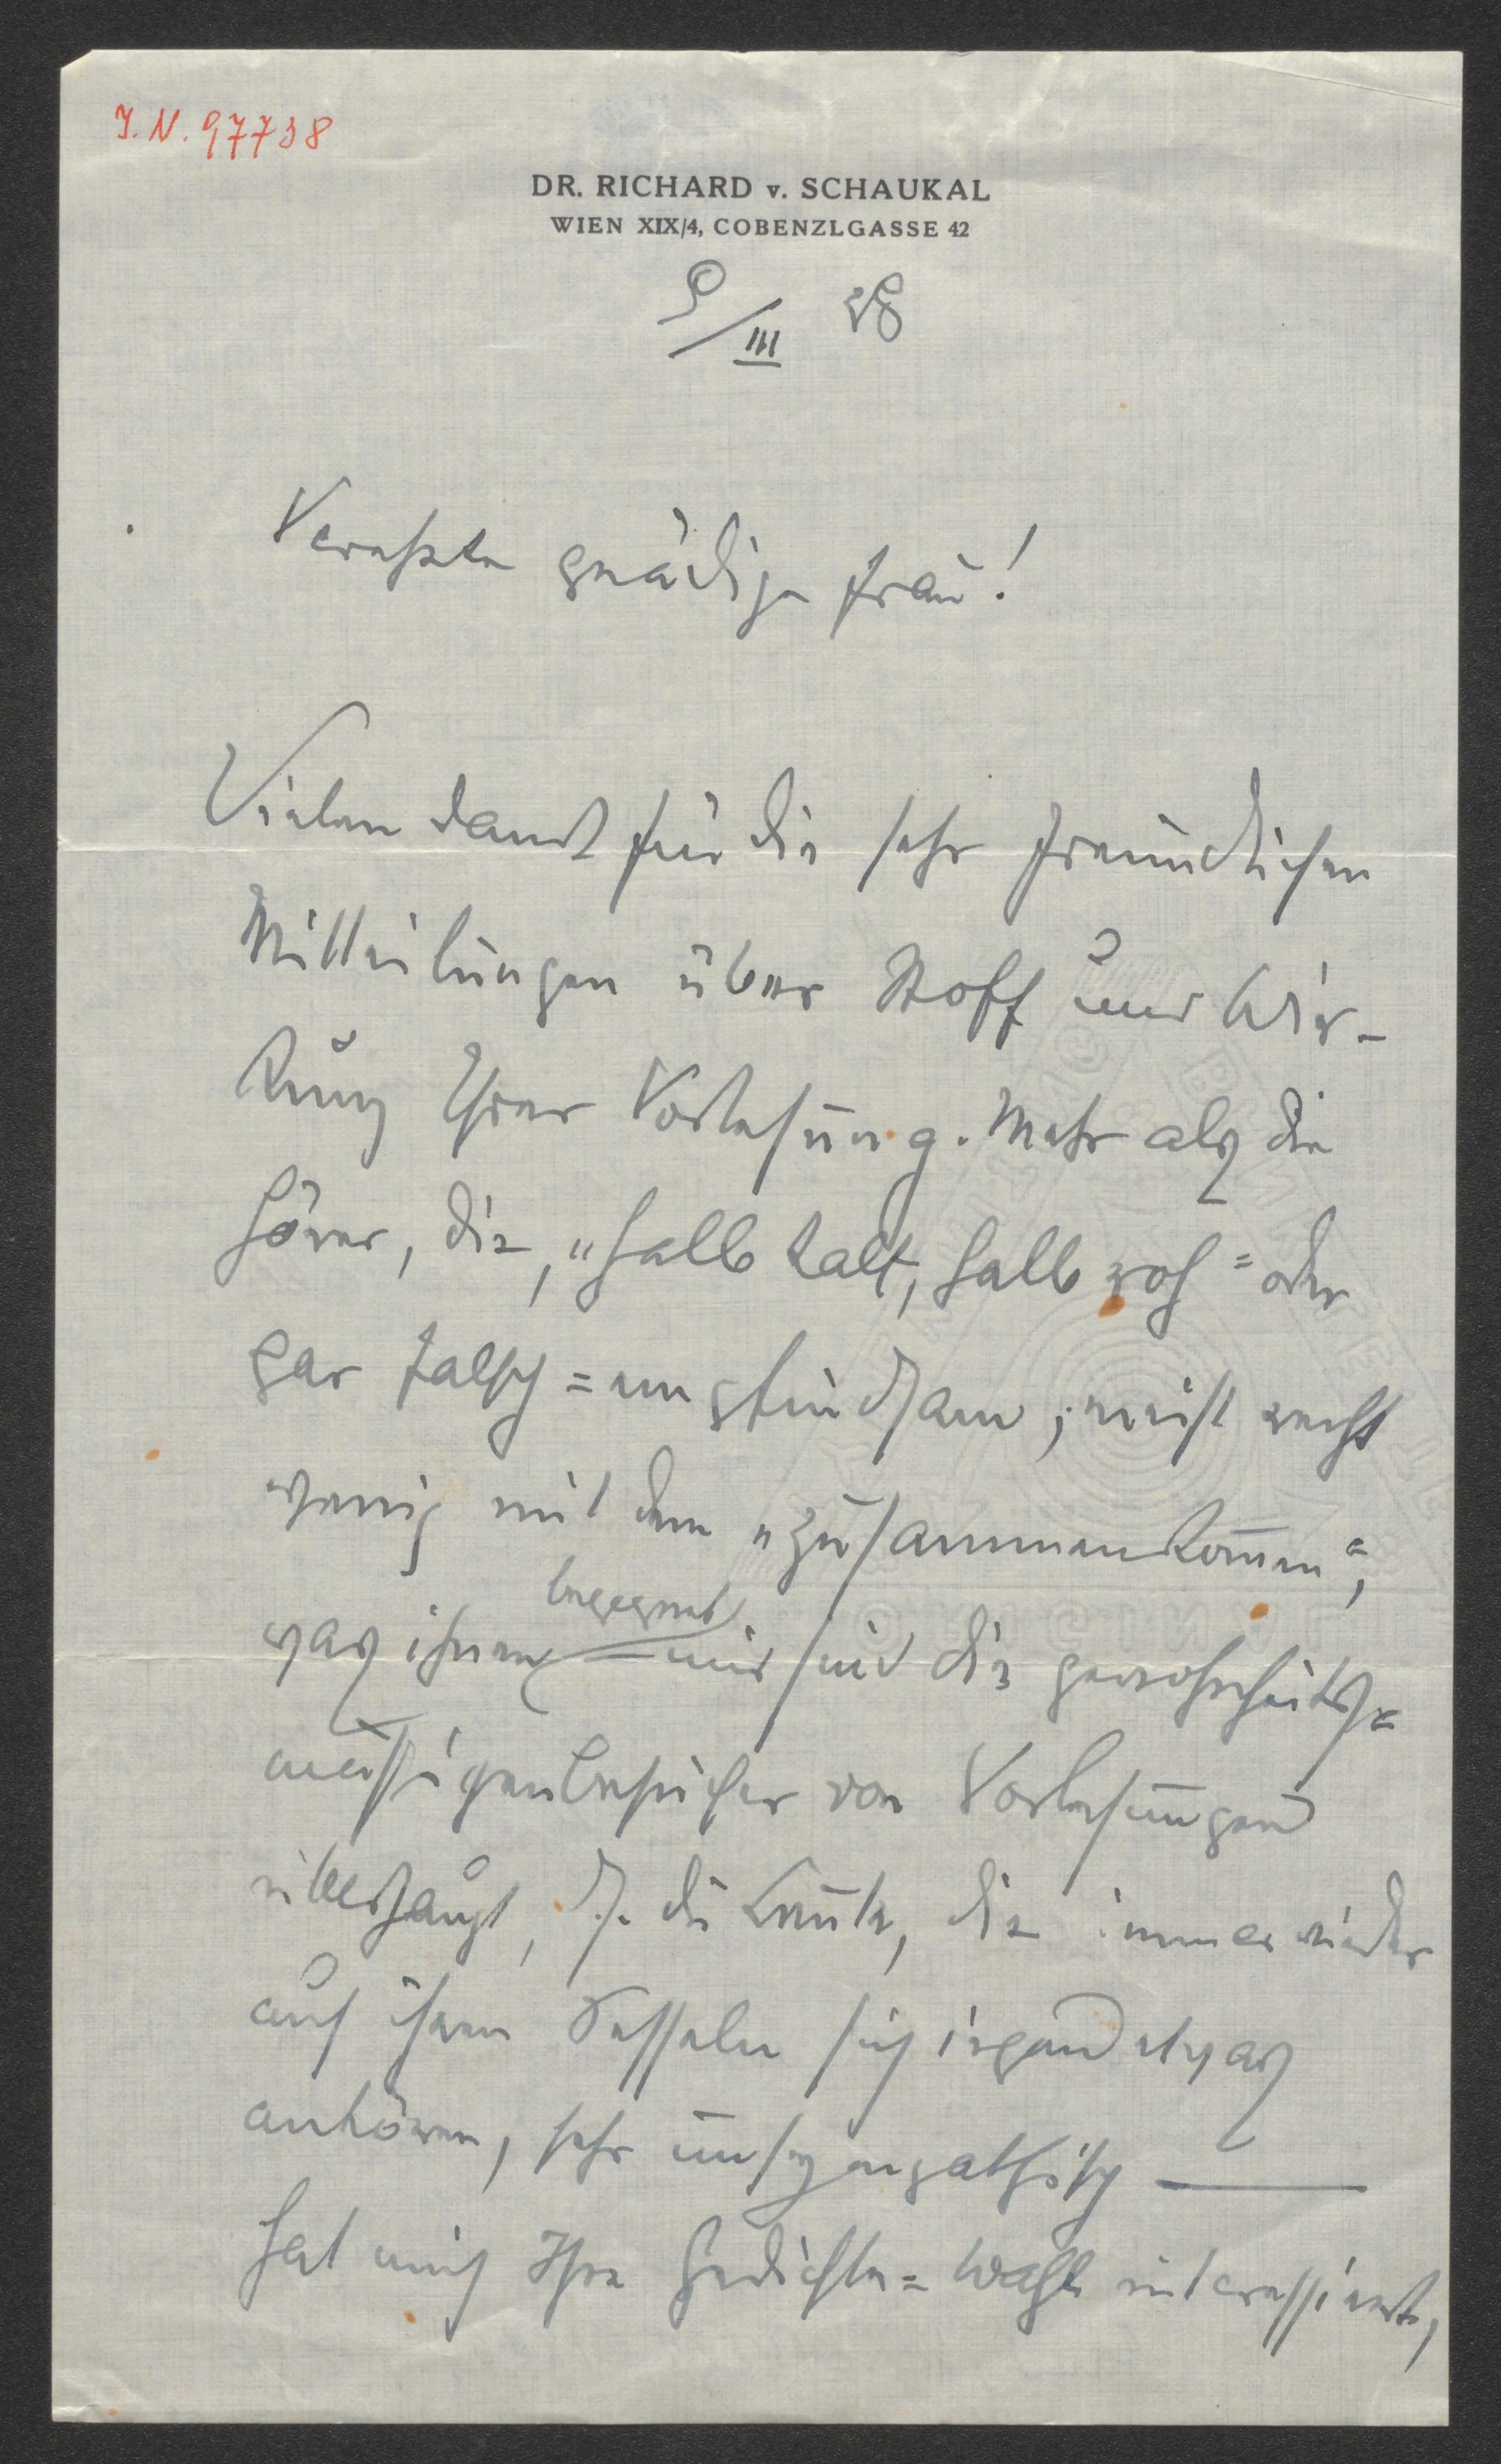 I. N. 97738
DR. RICHARD v. SCHAUKAL
WIEN XIX/4, COBENZLGASSE 42
9/III 28
Verehrte gnädige Frau!
Vielen Dank für die sehr freundlichen
Mitteilungen über Stoff und Wir-
kung Ihrer Vorlesung. Mehr als die
Hörer, die, „halb kalt, halb roh" oder
gar falsch=empfindsam, meist recht
wenig mit dem „zusammenkommen",
was ihnen begegnet – mir sind die gewohnheits=
mässigen Besucher von Vorlesungen
überhaupt, d. h. die Leute, die immer wieder
auf ihren Sesseln sich irgend etwas
anhören, sehr unsympathisch ——
hat mich Ihre Gedichte=Wahl interessiert,